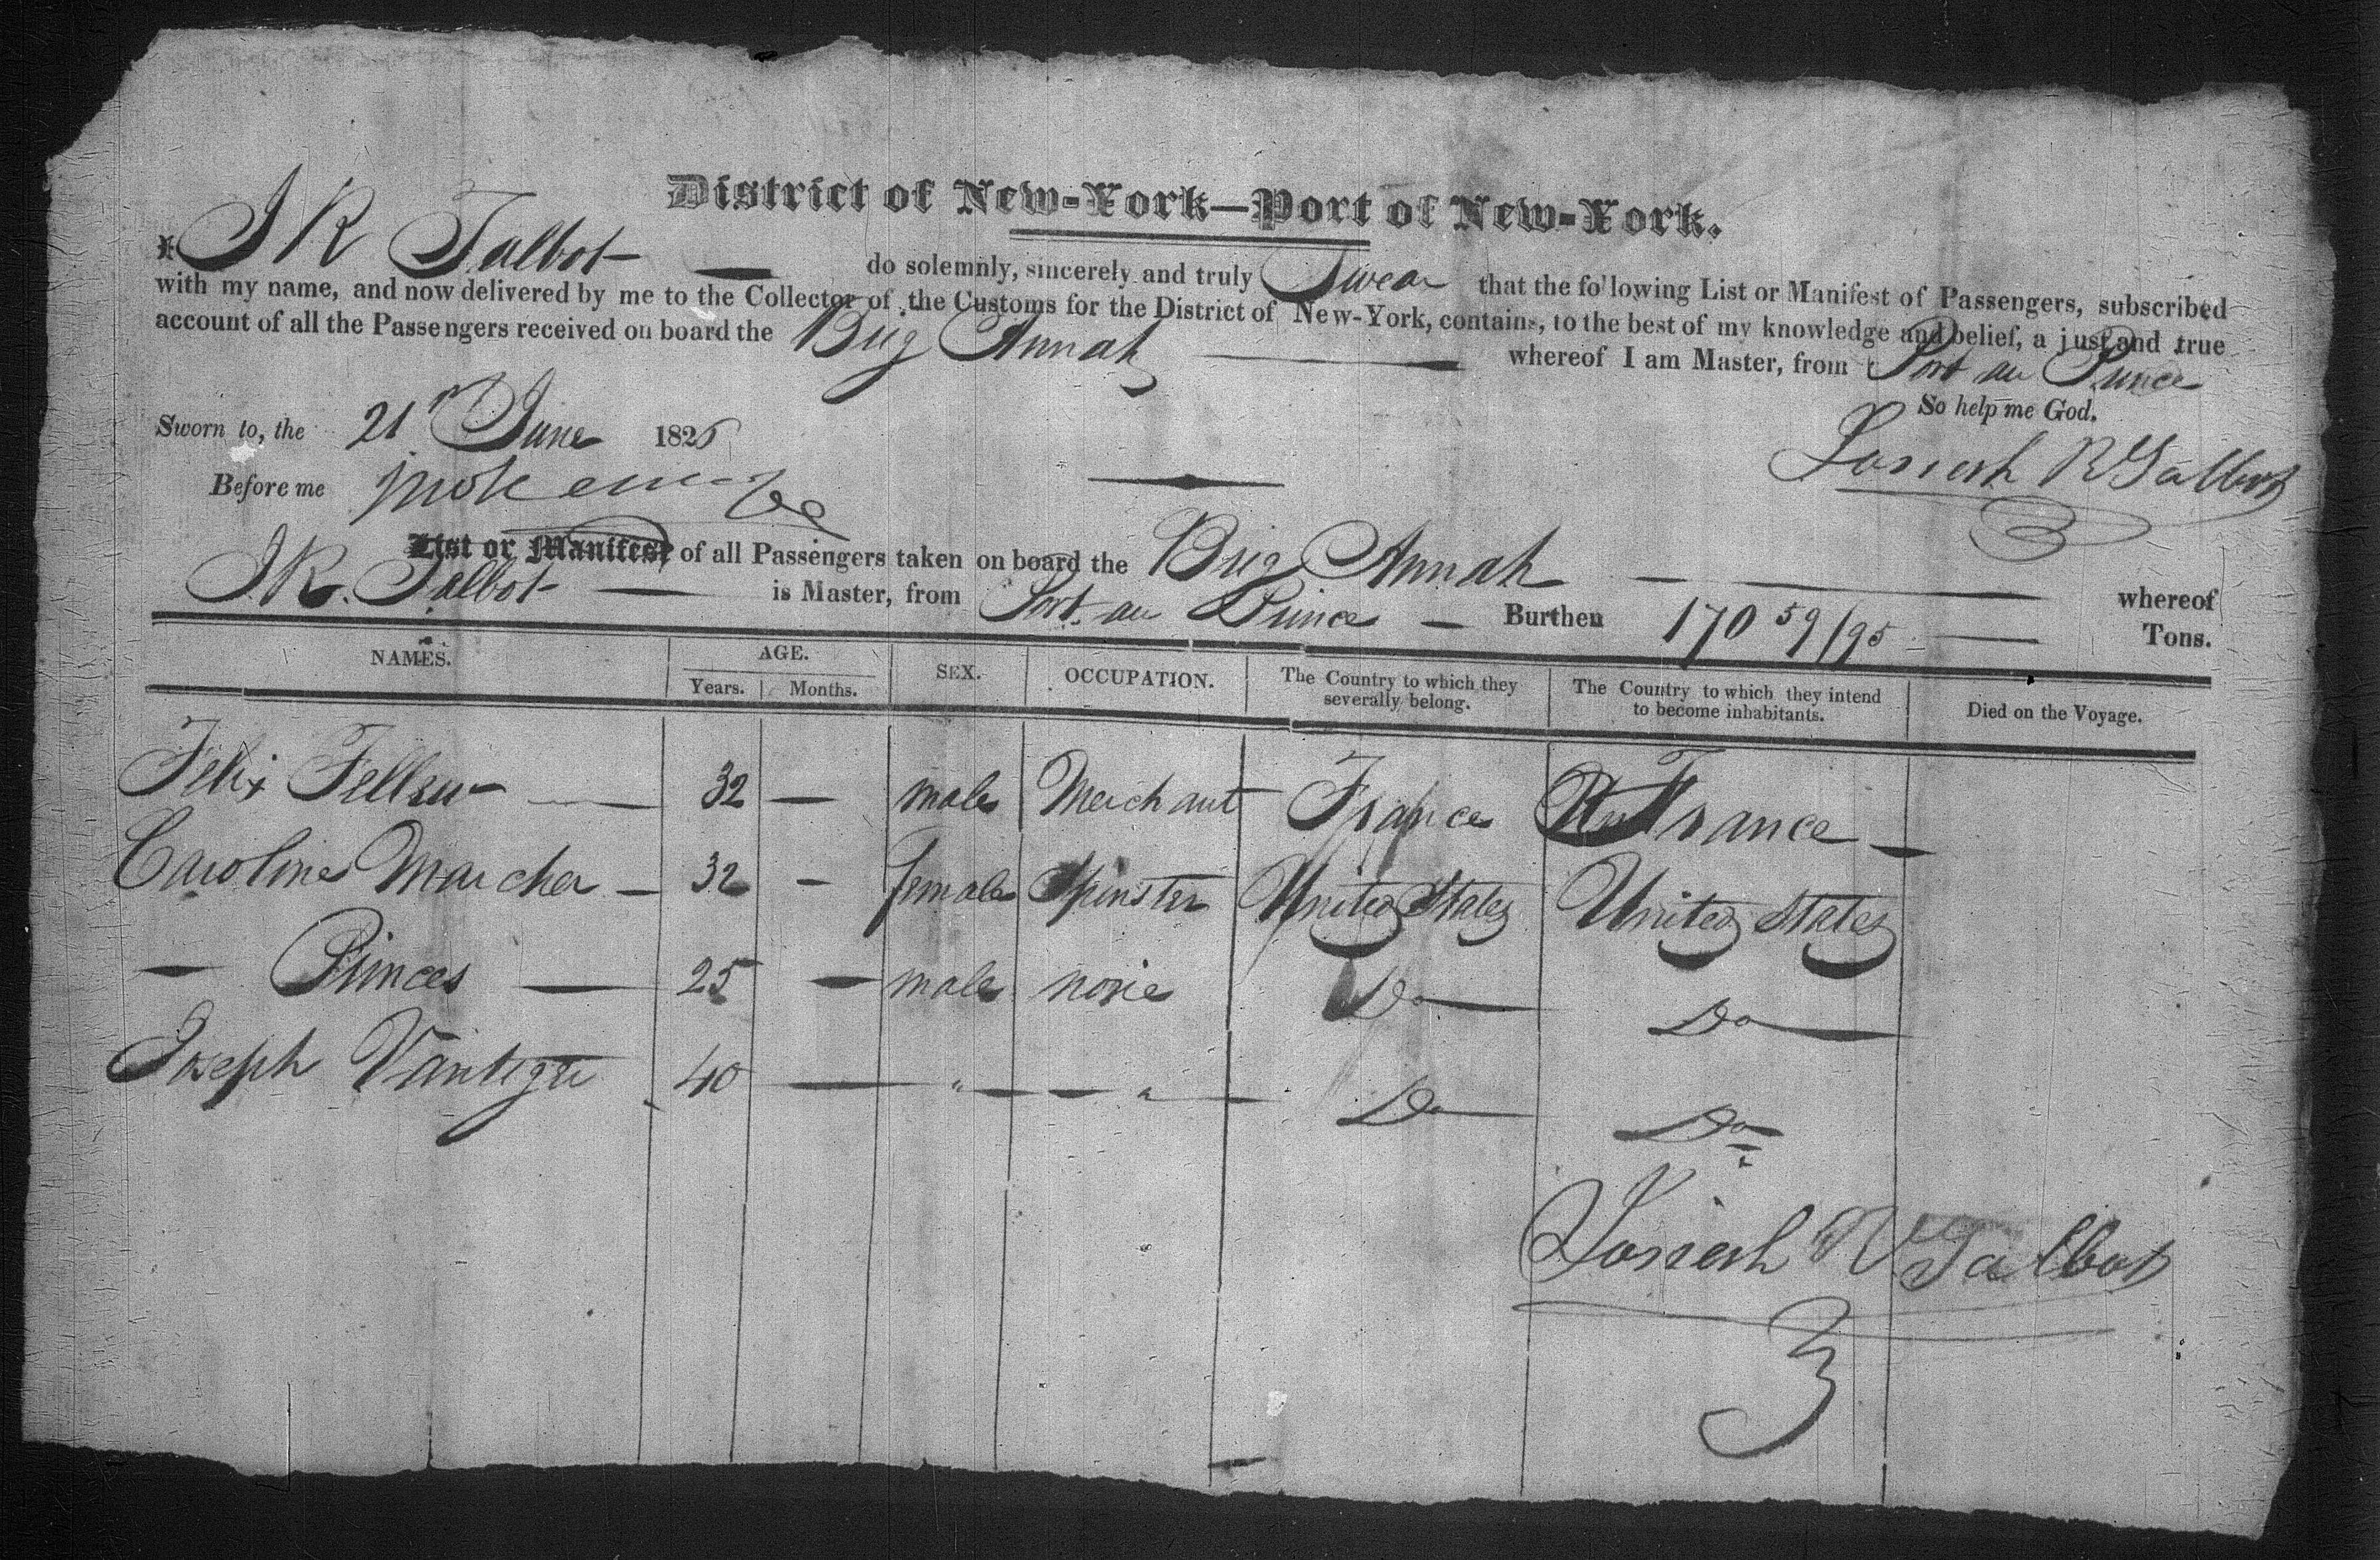 District of New-York—Port of New-York.
I J R Talbot — do solemnly, sincerely and truly Swear that the following List or Manifest of Passengers, subscribed
with my name, and now delivered by me to the Collector of the Customs for the District of New-York, contains, to the best of my knowledge and belief, a just and true
account of all the Passengers received on board the Brig Annah — whereof I am Master, from Port au Prince
So help me God.
Sworn to, the 21st June 1826
Josiah R Talbot
Before me
List or Manifest of all Passengers taken on board the Brig Annah — whereof
J R. Talbot — is Master, from Port au Prince — Burthen 170 59/95 — Tons.
NAMES. AGE. SEX. OCCUPATION. The Country to which they severally belong. The Country to which they intend to become inhabitants. Died on the Voyage.
Years. Months.
Felix — 32 — male Merchant France France —
Caroline Marcher — 32 — female Spinster United States United States
— Princes — 25 — male none Do — Do —
Joseph 40 — " — " — Do — Do
Josiah R Talbot